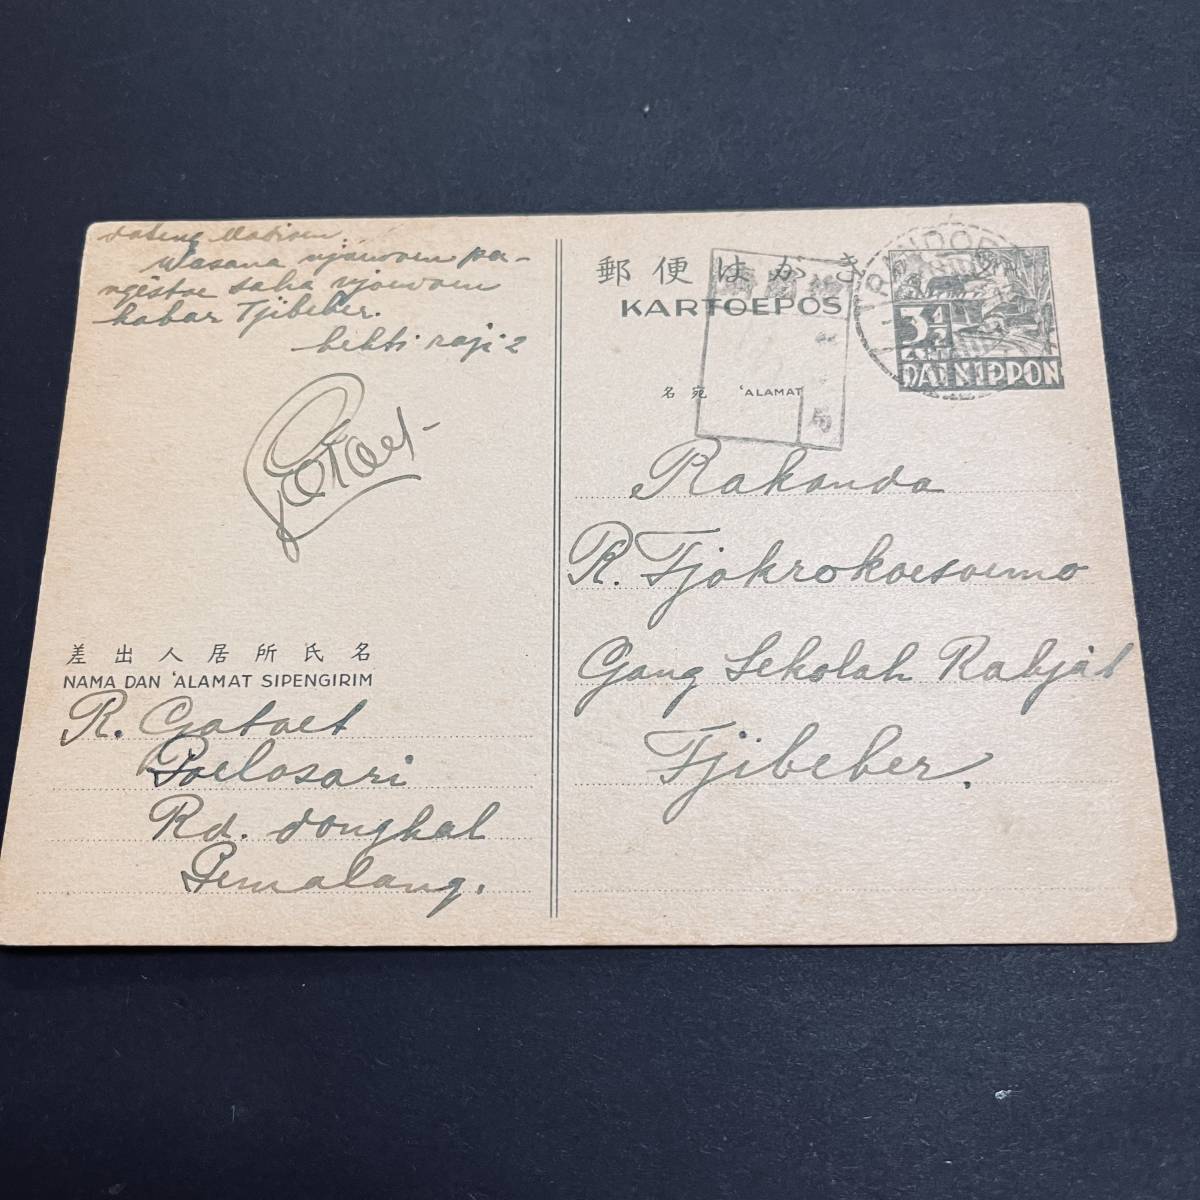 dateng Madioen
Wasana njoewoen pa-
ngestoe saha njoewoen
kabar Tjibeber.
bekti raji2
Gatoet
差出人居所氏名
NAMA DAN 'ALAMAT SIPENGIRIM
R. Gatoet
Poelosari
Rd. dongkal
Pemalang.
郵便はがき
KARTOEPOS
3 1/2
CENT
DAI NIPPON
名宛 'ALAMAT
Rakanda
R. Tjokrokoesoemo
Gang Sekolah Rakjat
Tjibeber.